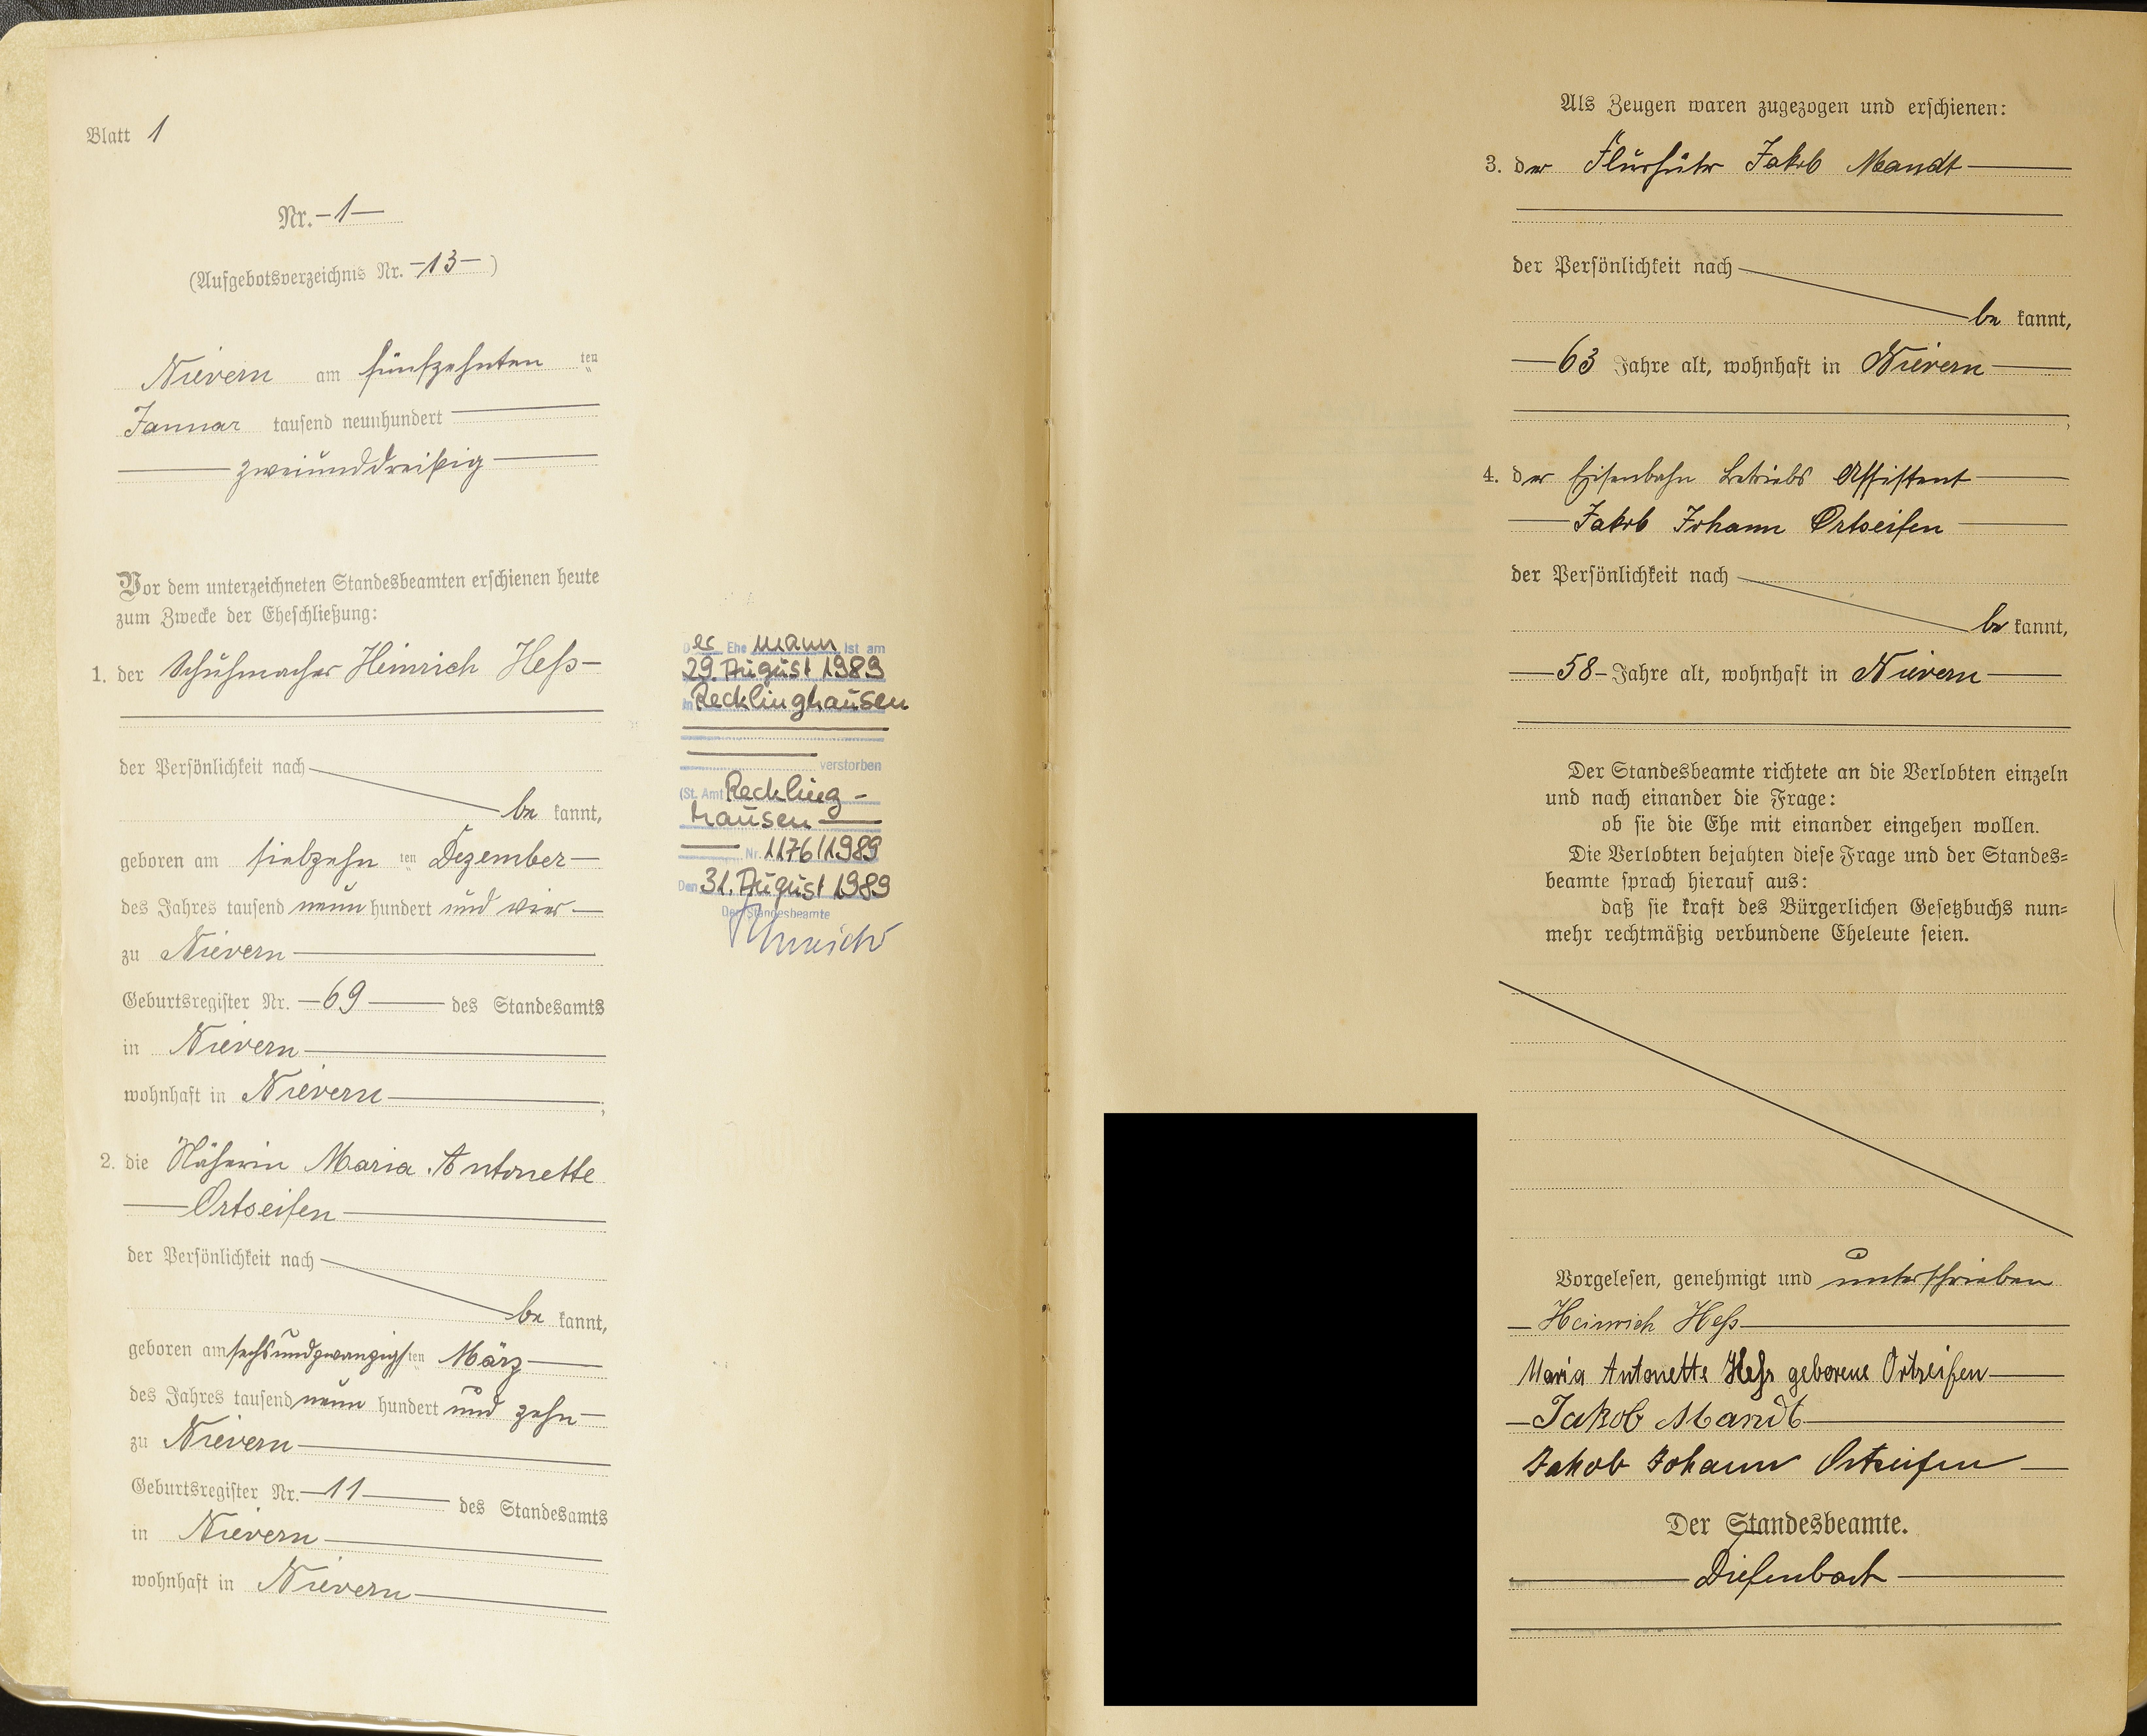 Blatt 1
Nr. – 1 –
(Aufgebotsverzeichnis Nr. – 13 – )
Nievern am fünfzehnten ten
Januar tausend neunhundert
zweiunddreißig
Vor dem unterzeichneten Standesbeamten erschienen heute
zum Zwecke der Eheschließung:
1. der Schuhmacher Heinrich Heß –
der Persönlichkeit nach
be kannt,
geboren am siebzehn ten Dezember –
des Jahres tausend neun hundert und vier –
zu Nievern
Geburtsregister Nr. – 69 – des Standesamts
in Nievern
wohnhaft in Nievern ;
2. die Näherin Maria Antonette
Ortseifen
der Persönlichkeit nach
be kannt,
geboren am sechsundzwanzigs ten März
des Jahres tausend neun hundert und zehn –
zu Nievern
Geburtsregister Nr. – 11 – des Standesamts
in Nievern
wohnhaft in Nievern
Der Ehe mann ist am
29. August 1989
in Recklinghausen
verstorben
(St. Amt Reckling-
hausen
Nr. 1176/1989
Den 31. August 1989
Der Standesbeamte
Als Zeugen waren zugezogen und erschienen:
3. der Flurhüter Jakob Mandt
der Persönlichkeit nach
be kannt,
– 63 Jahre alt, wohnhaft in Nievern
,
4. der Eisenbahn Betriebs Assistent
Jakob Johann Ortseifen
der Persönlichkeit nach
be kannt,
– 58 – Jahre alt, wohnhaft in Nievern
Der Standesbeamte richtete an die Verlobten einzeln
und nach einander die Frage:
ob sie die Ehe mit einander eingehen wollen.
Die Verlobten bejahten diese Frage und der Standes=
beamte sprach hierauf aus:
daß sie kraft des Bürgerlichen Gesetzbuchs nun=
mehr rechtmäßig verbundene Eheleute seien.
Vorgelesen, genehmigt und unterschrieben
– Heinrich Heß
Maria Antonette Heß geborene Ortseifen
– Jakob Mandt
Jakob Johann Ortseifen –
Der Standesbeamte.
Diefenbach